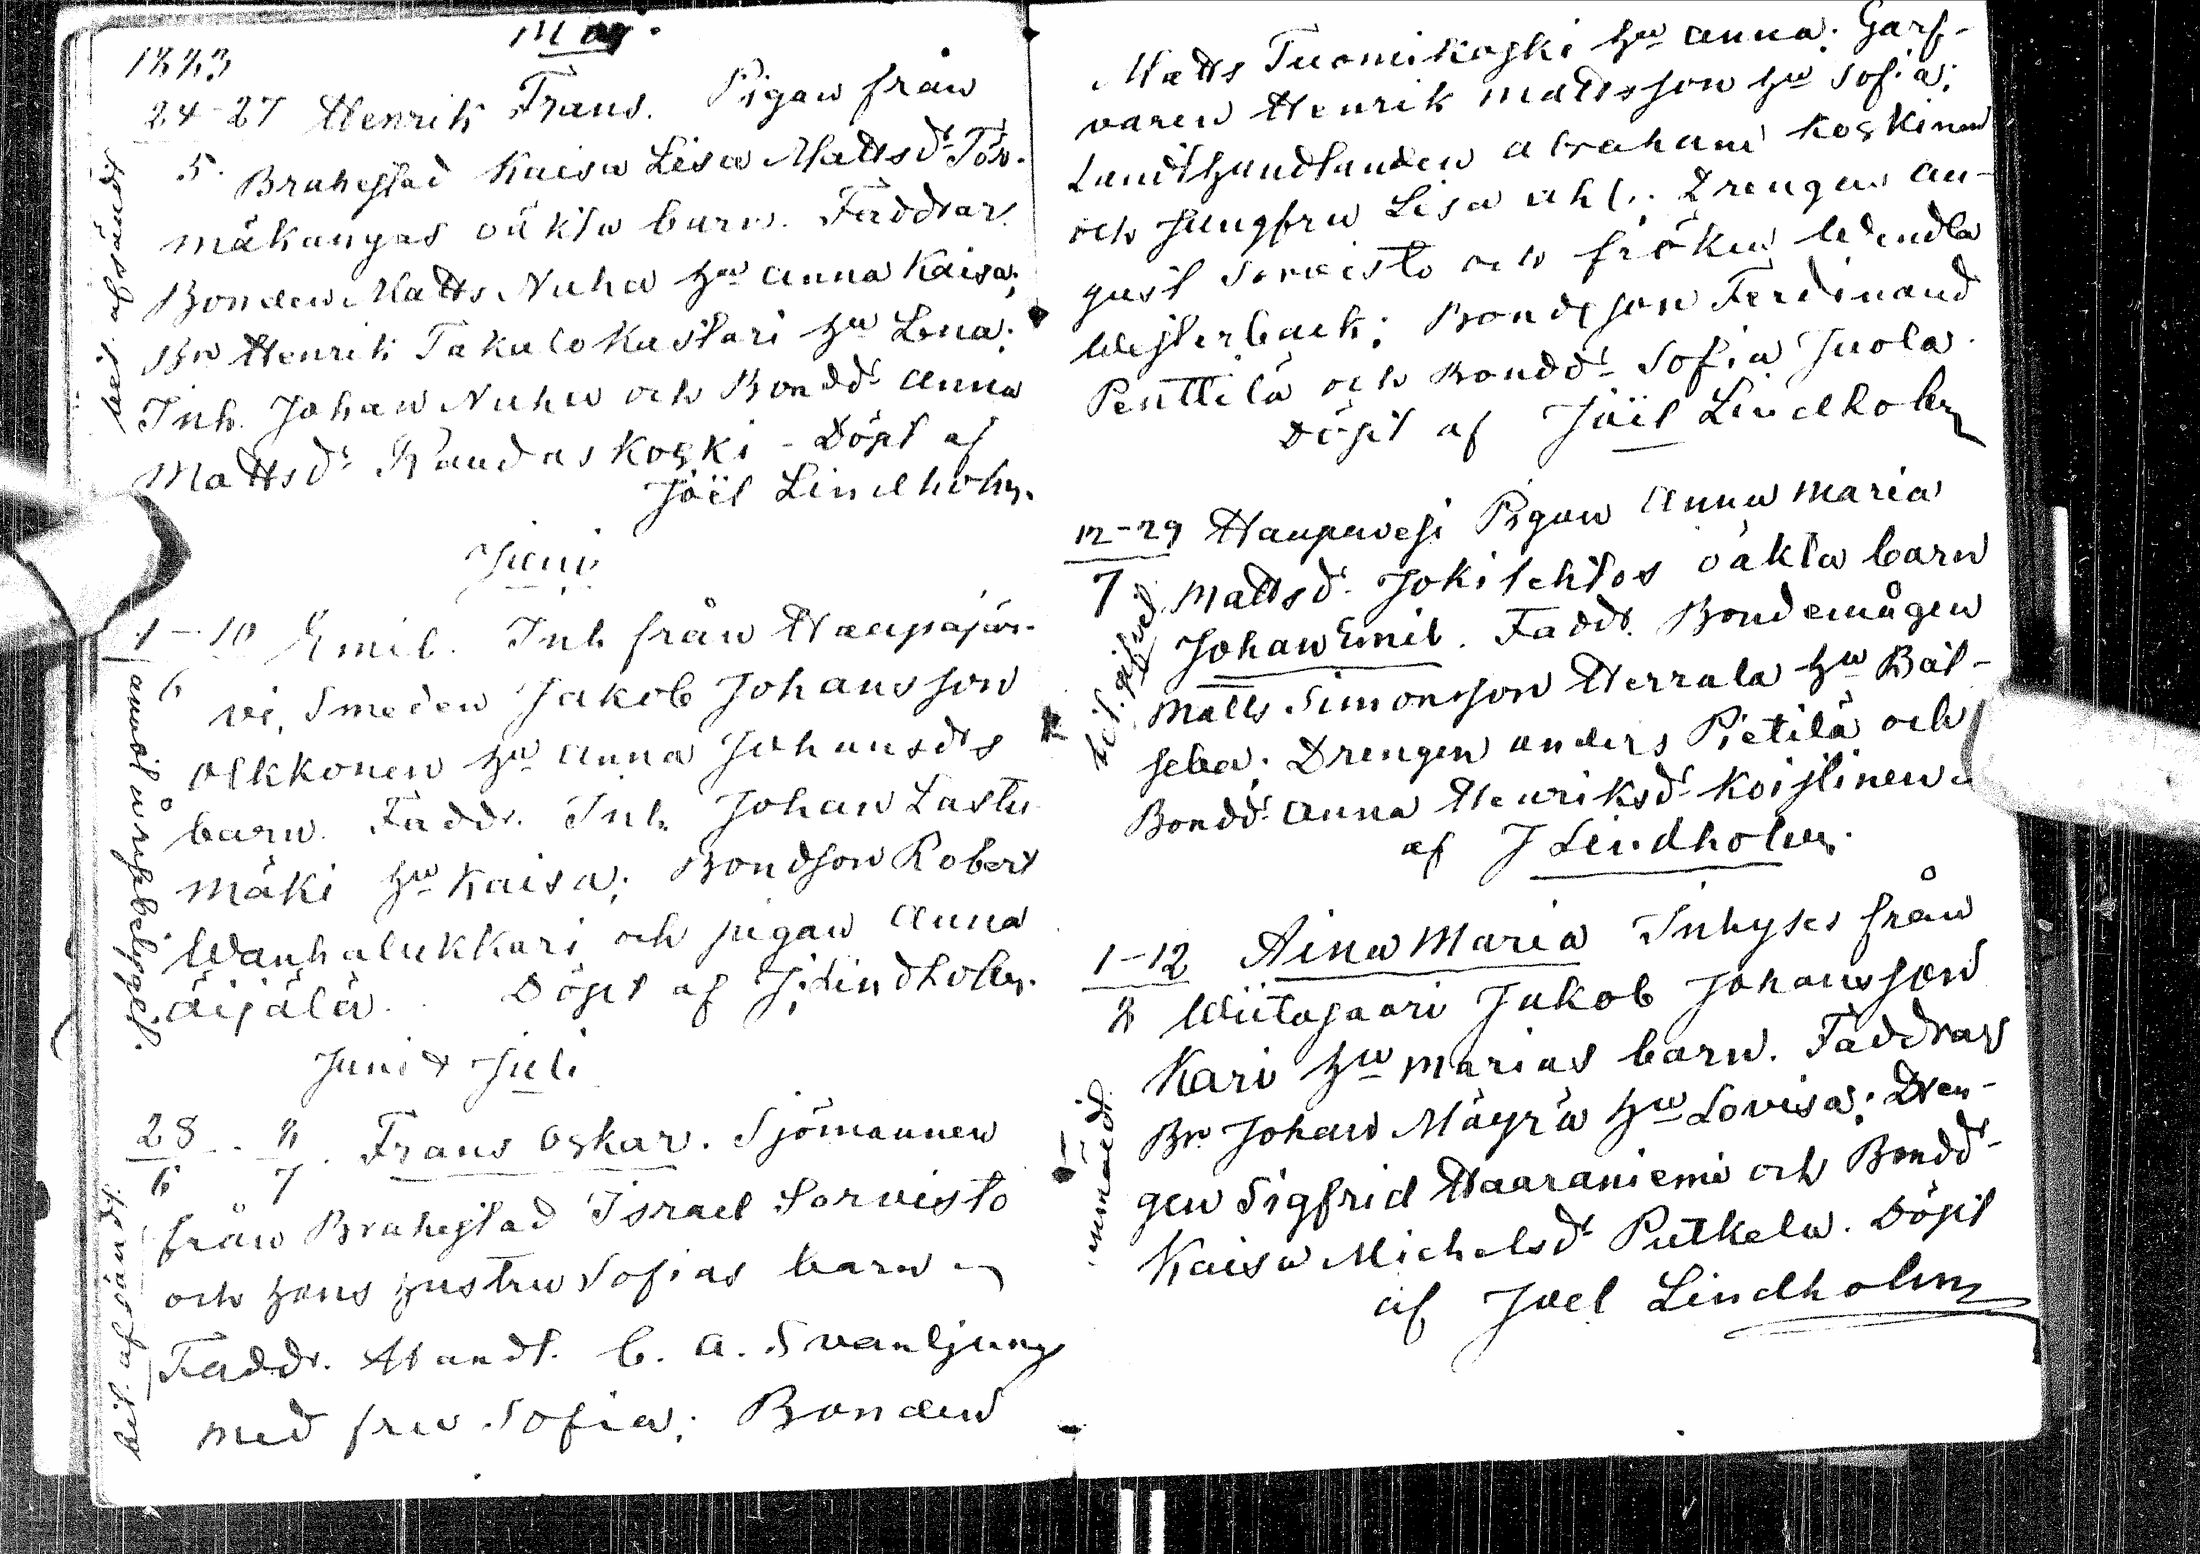 1883
Maj.
24-27 Henrik Frans. Pigan från
5. Brahestad Kaisa Lisa Mattsdr Tör-
mäkangas oäkta barn. Faddrar
Bonden Matts Nuha hu Anna Kaisa;
Bn Henrik Takalo Kastari hu Lena;
Inh. Johan Nuha och Bondd. Anna
Mattsdr Raudaskoski - Döpt af
Joël Lindholm.
bet. afsändt
Juni
1-10 Emil. Inh från Haapajär-
6 vi, Smeden Jakob Johansson
Olkkonen hu Anna Johansds
barn. Faddr. Inh. Johan Lastu
mäki hu Kaisa; Bondson Robert
Wanhalukkari och pigan Anna
Äijälä. Döpt af J. Lindholm.
Juni & Juli
28 - 8 . Frans Oskar. Sjömannen
6 7
från Brahestad Israel Sorvisto
och hans hustru Sofias barn
Faddr. Handl. C. A. Svanljung
med fru Sofia; Bonden
bet. afsändt.
Matts Tuomikoski hu Anna; Garf-
varen Henrik Mattsson hu Sofia;
Landthandlanden Abraham Koskinen
och jungfru Lisa Ahl.; Drengen Au-
gust Sorvisto och fröken Wendla
Westerback; Bondeson Ferdinand
Penttilä och Bondd. Sofia Juola.
Döpt af Joël Lindholm
12-29 Haapavesi Pigan Anna Maria
7 Mattsd. Jokilehtos oäkta barn
Johan Emil. Faddr. Bondemågen
Matts Simonsson Herrala hu Bat-
seba; Drengen Anders Pietilä och
Bondd. Anna Henriksd. Koistinen
af J Lindholm.
bet. gifvet
1-12 Aina Maria Inhyses från
8 Wiitasaari Jakob Johansson
Kari hu Marias barn. Faddrar
Bn Johan Mäyrä hu Lovisa; Dren-
gen Sigfrid Haaraniemi och Bondd.
Kaisa Michelsdr Putkela. Döpt
af Joel Lindholm
anmäldt